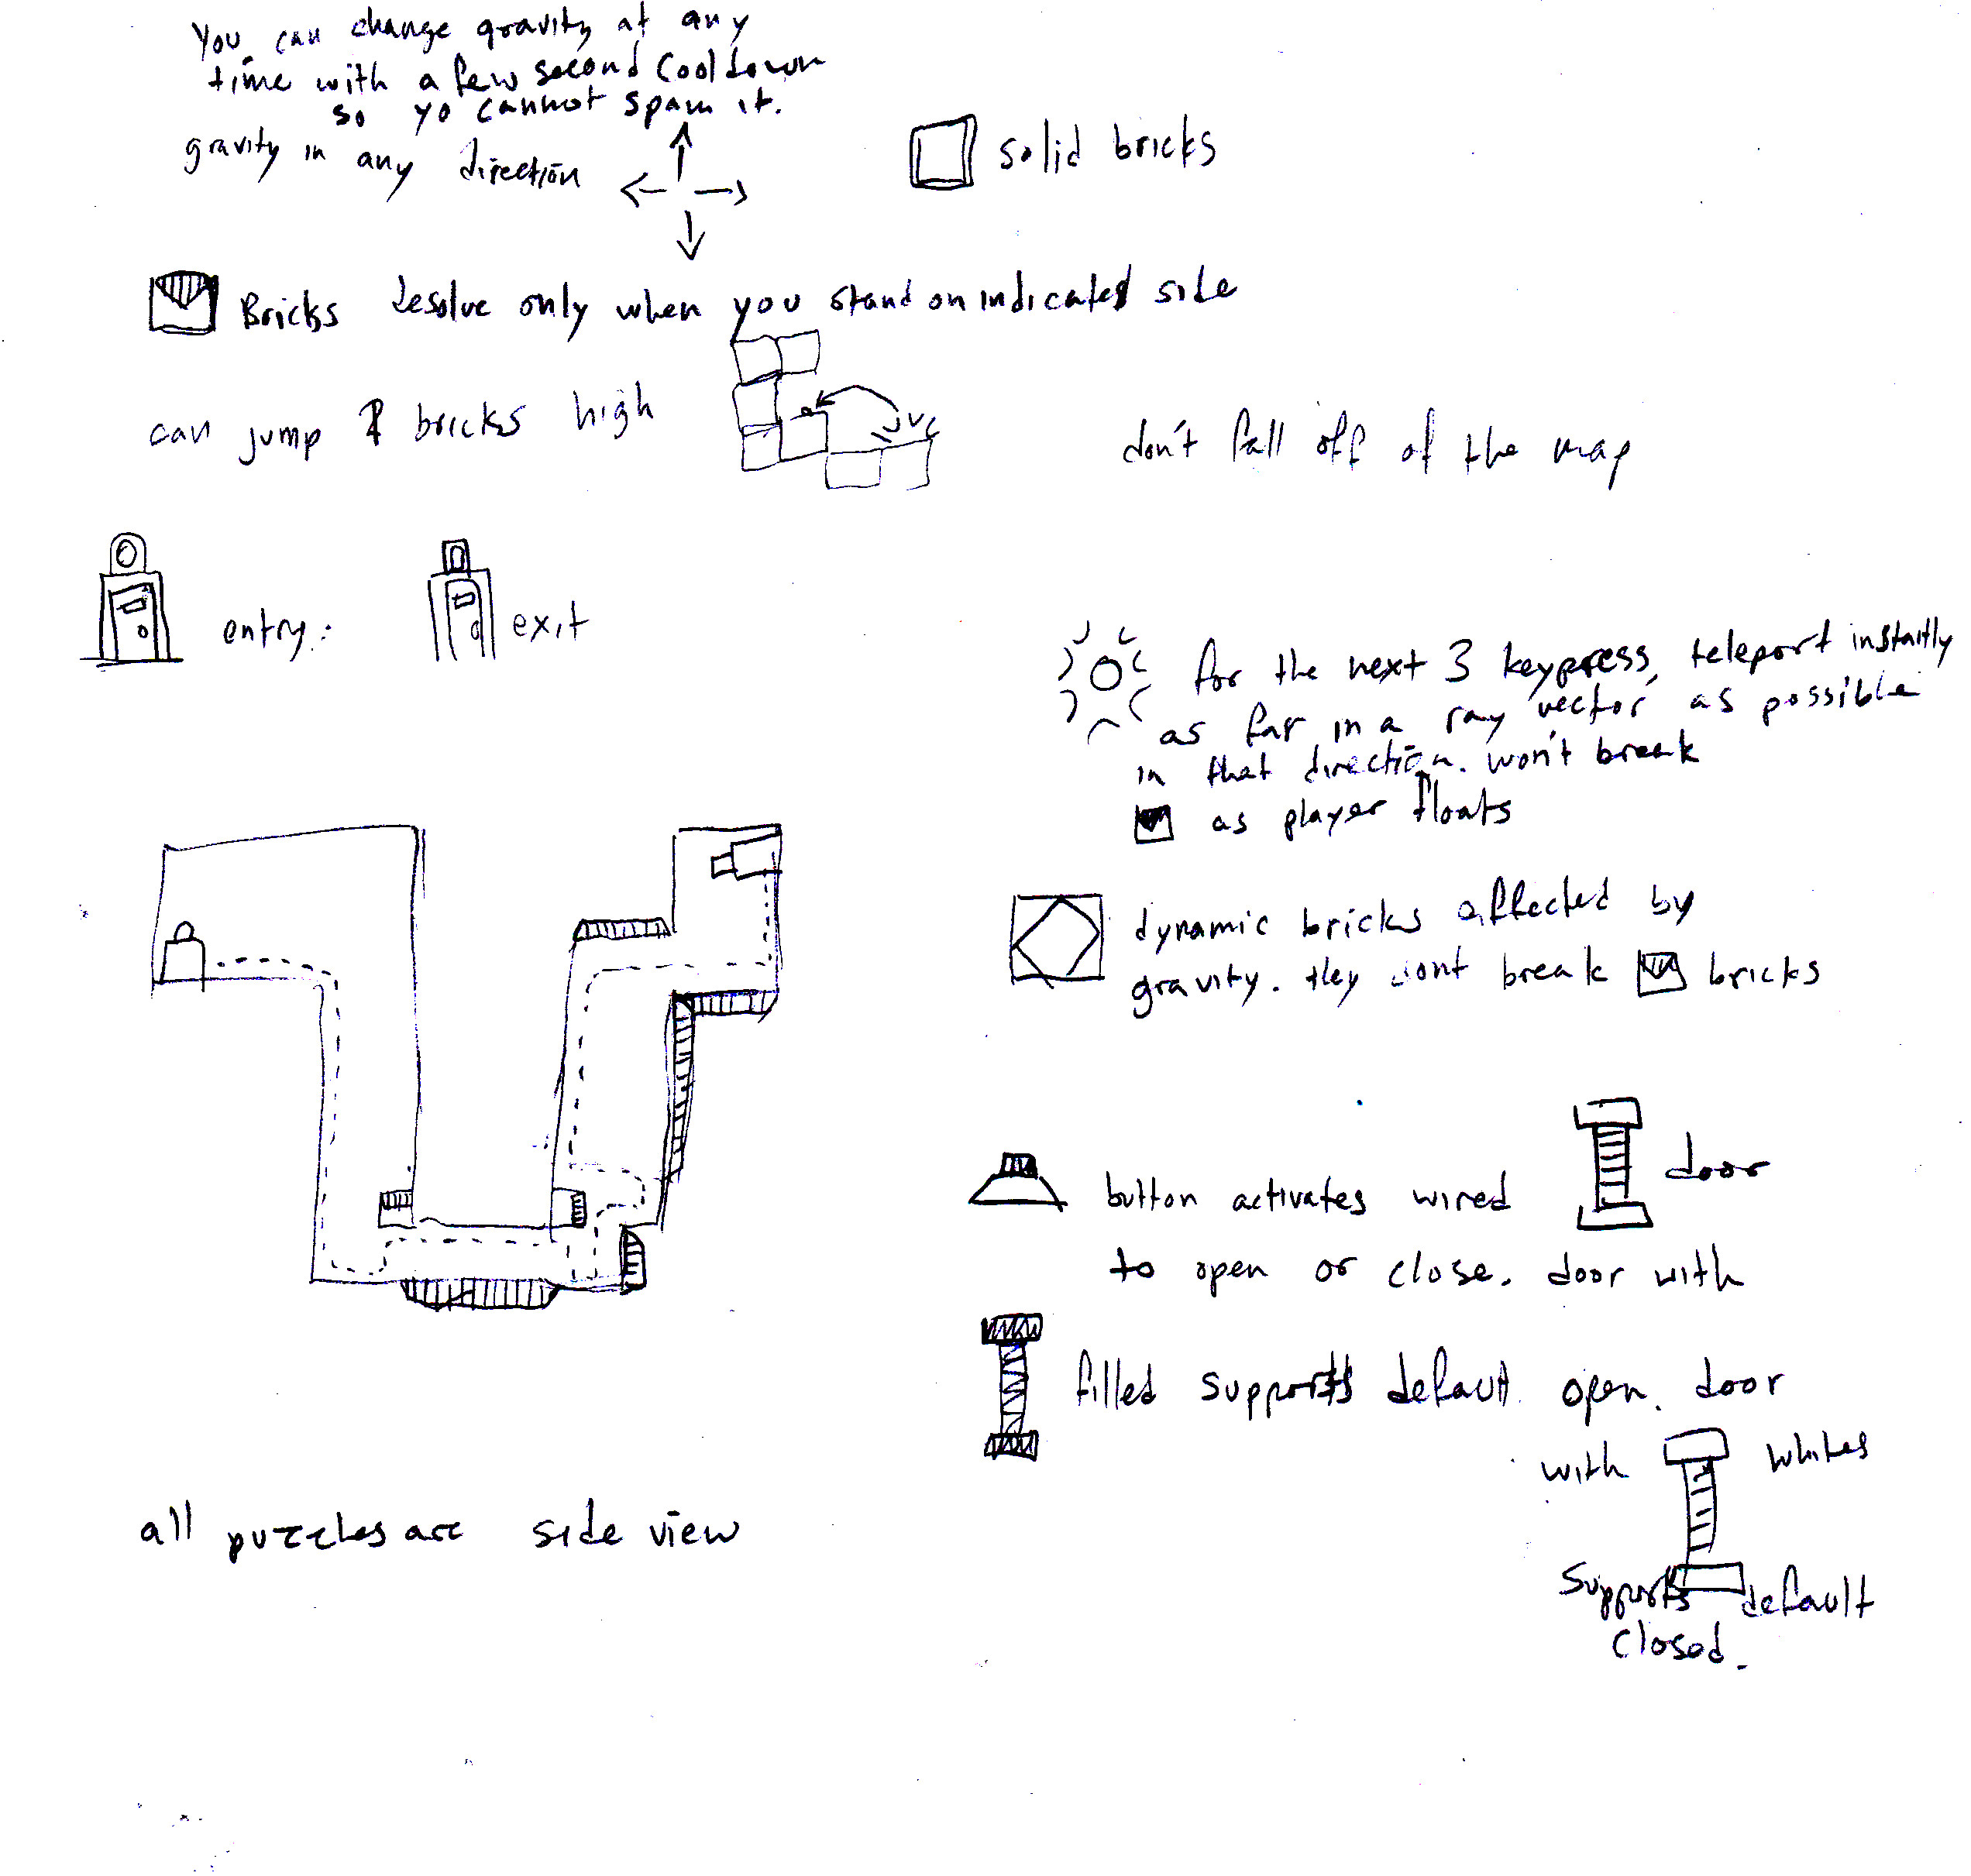 You can change gravity at any
time with a few second cooldown
so yo cannot spam it.
gravity in any direction
solid bricks
Bricks desolve only when you stand on indicated side
can jump 1 bricks high
don't fall off of the map
entry:
exit
for the next 3 keypress, teleport instantly
as far in a ray vector as possible
in that direction. won't break
as player floats
dynamic bricks affected by
gravity. they dont break bricks
button activates wired door
to open or close. door with
filled supports default open. door
with whites
supports default
closed.
all puzzles are side view